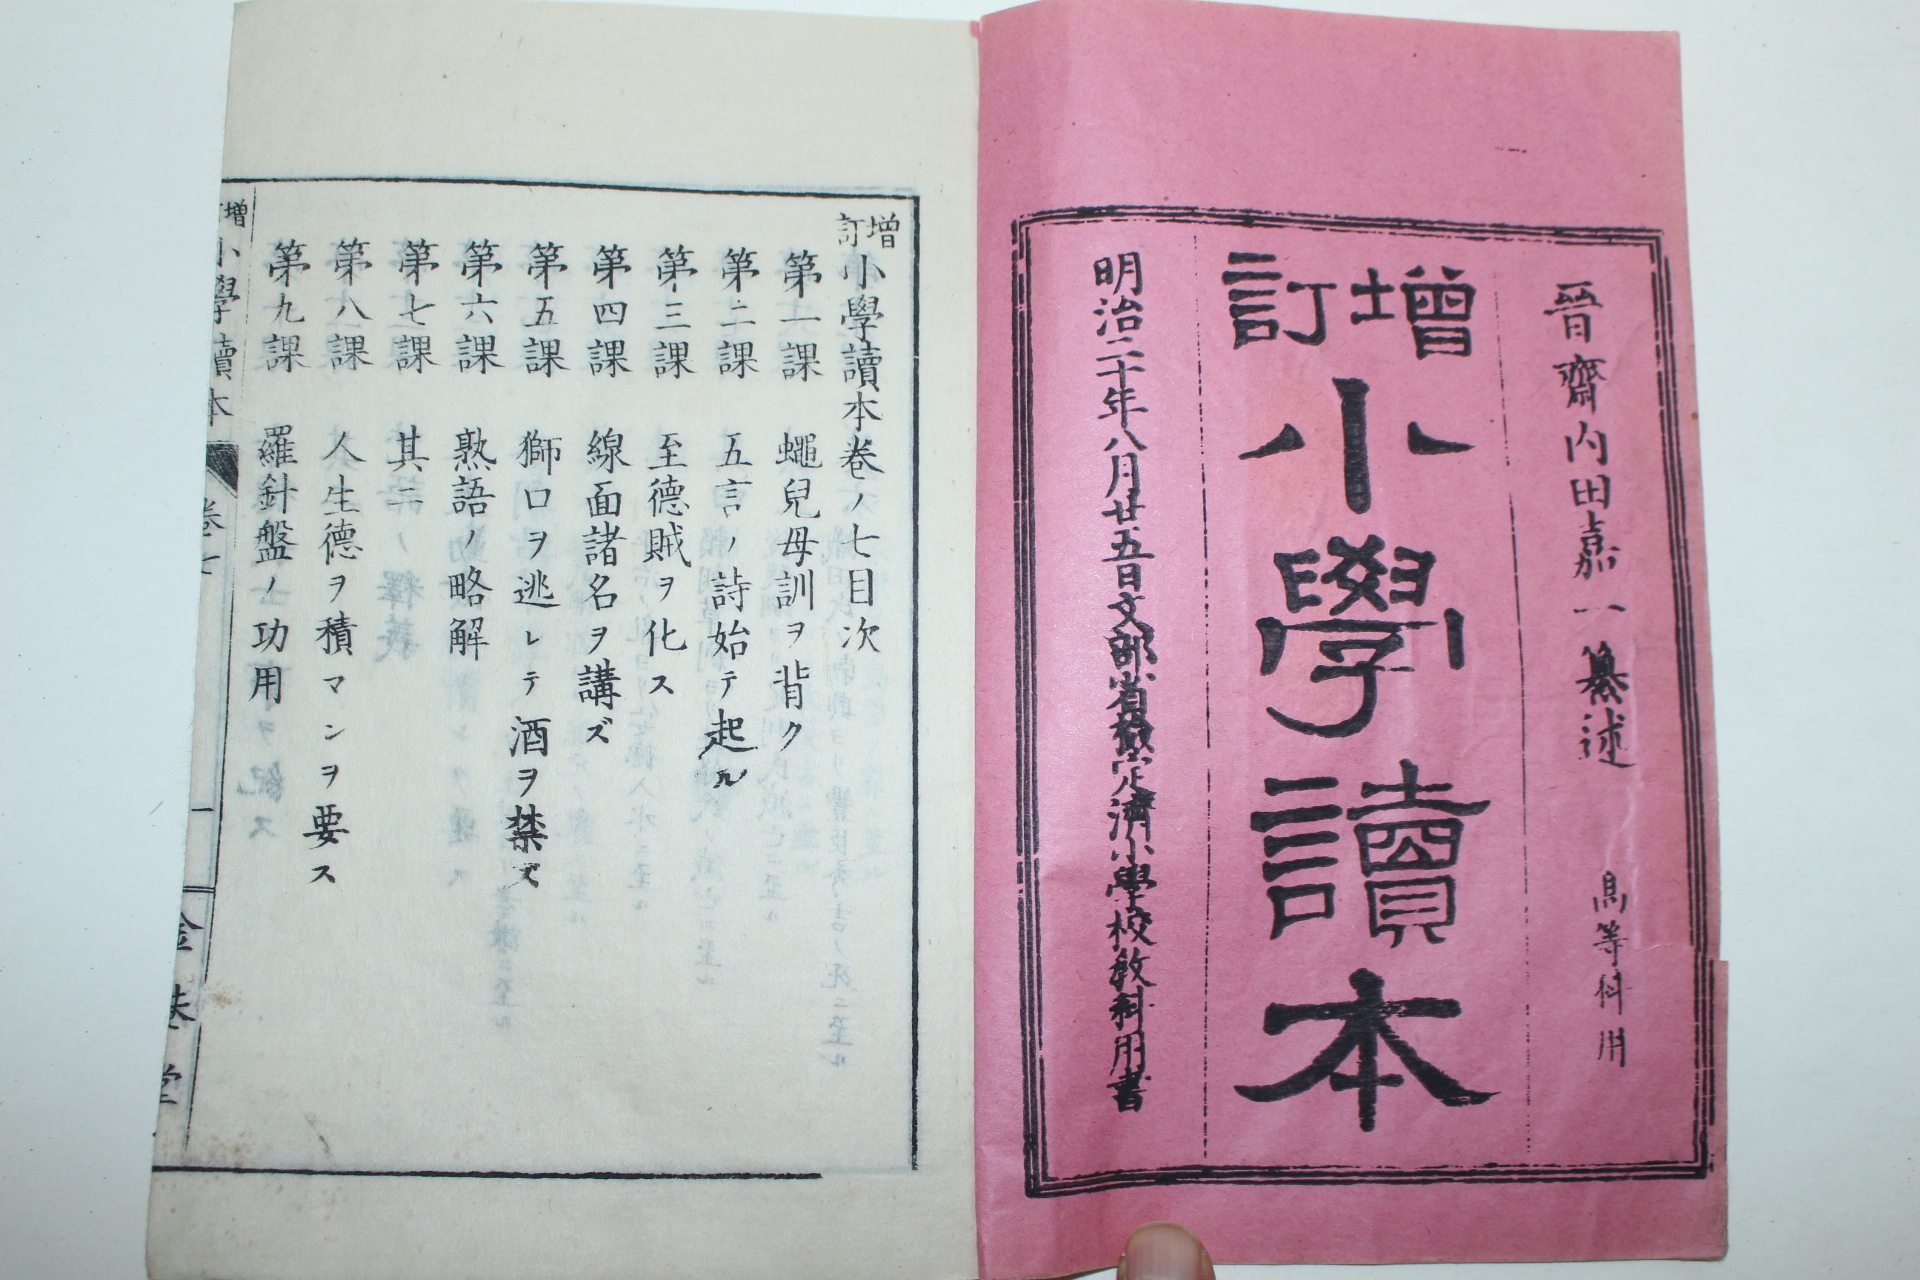 晉齋內田嘉一纂述　高等科用
增訂小學讀本
明治二十年八月廿五日文部省檢定濟小學校教科用書
增訂小學讀本卷ノ七目次
第一課　蠅兒母訓ヲ背ク
第二課　五言ノ詩始テ起ル
第三課　至德賊ヲ化ス
第四課　線面諸名ヲ講ズ
第五課　獅口ヲ逃レテ酒ヲ禁ズ
第六課　熟語ノ略解
第七課　其ニ
第八課　人生德ヲ積マンヲ要ス
第九課　羅針盤ノ功用
增訂小學讀本　卷七　一　金港堂